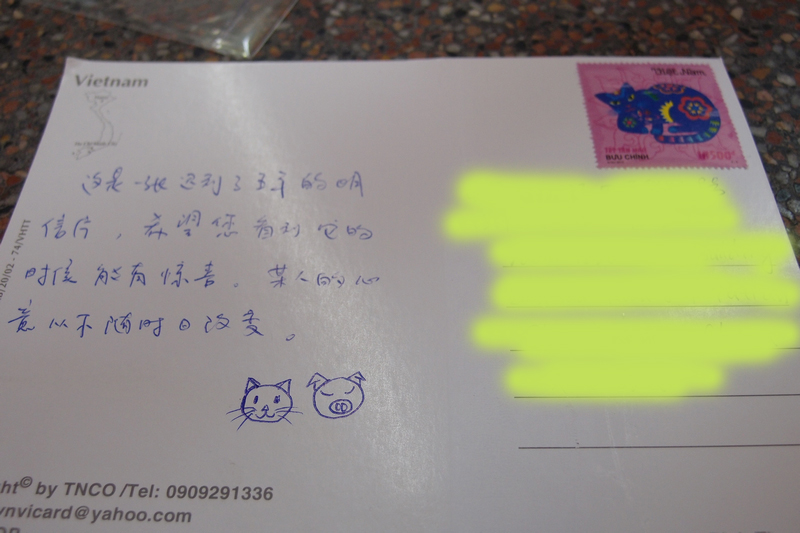 Vietnam
Việt Nam
BƯU CHÍNH
这是一张迟到了五年的明
信片，希望您看到它的
时候能有惊喜。某人的心
意从不随时日改变。
ht© by TNCO /Tel: 0909291336
ynvicard@yahoo.com